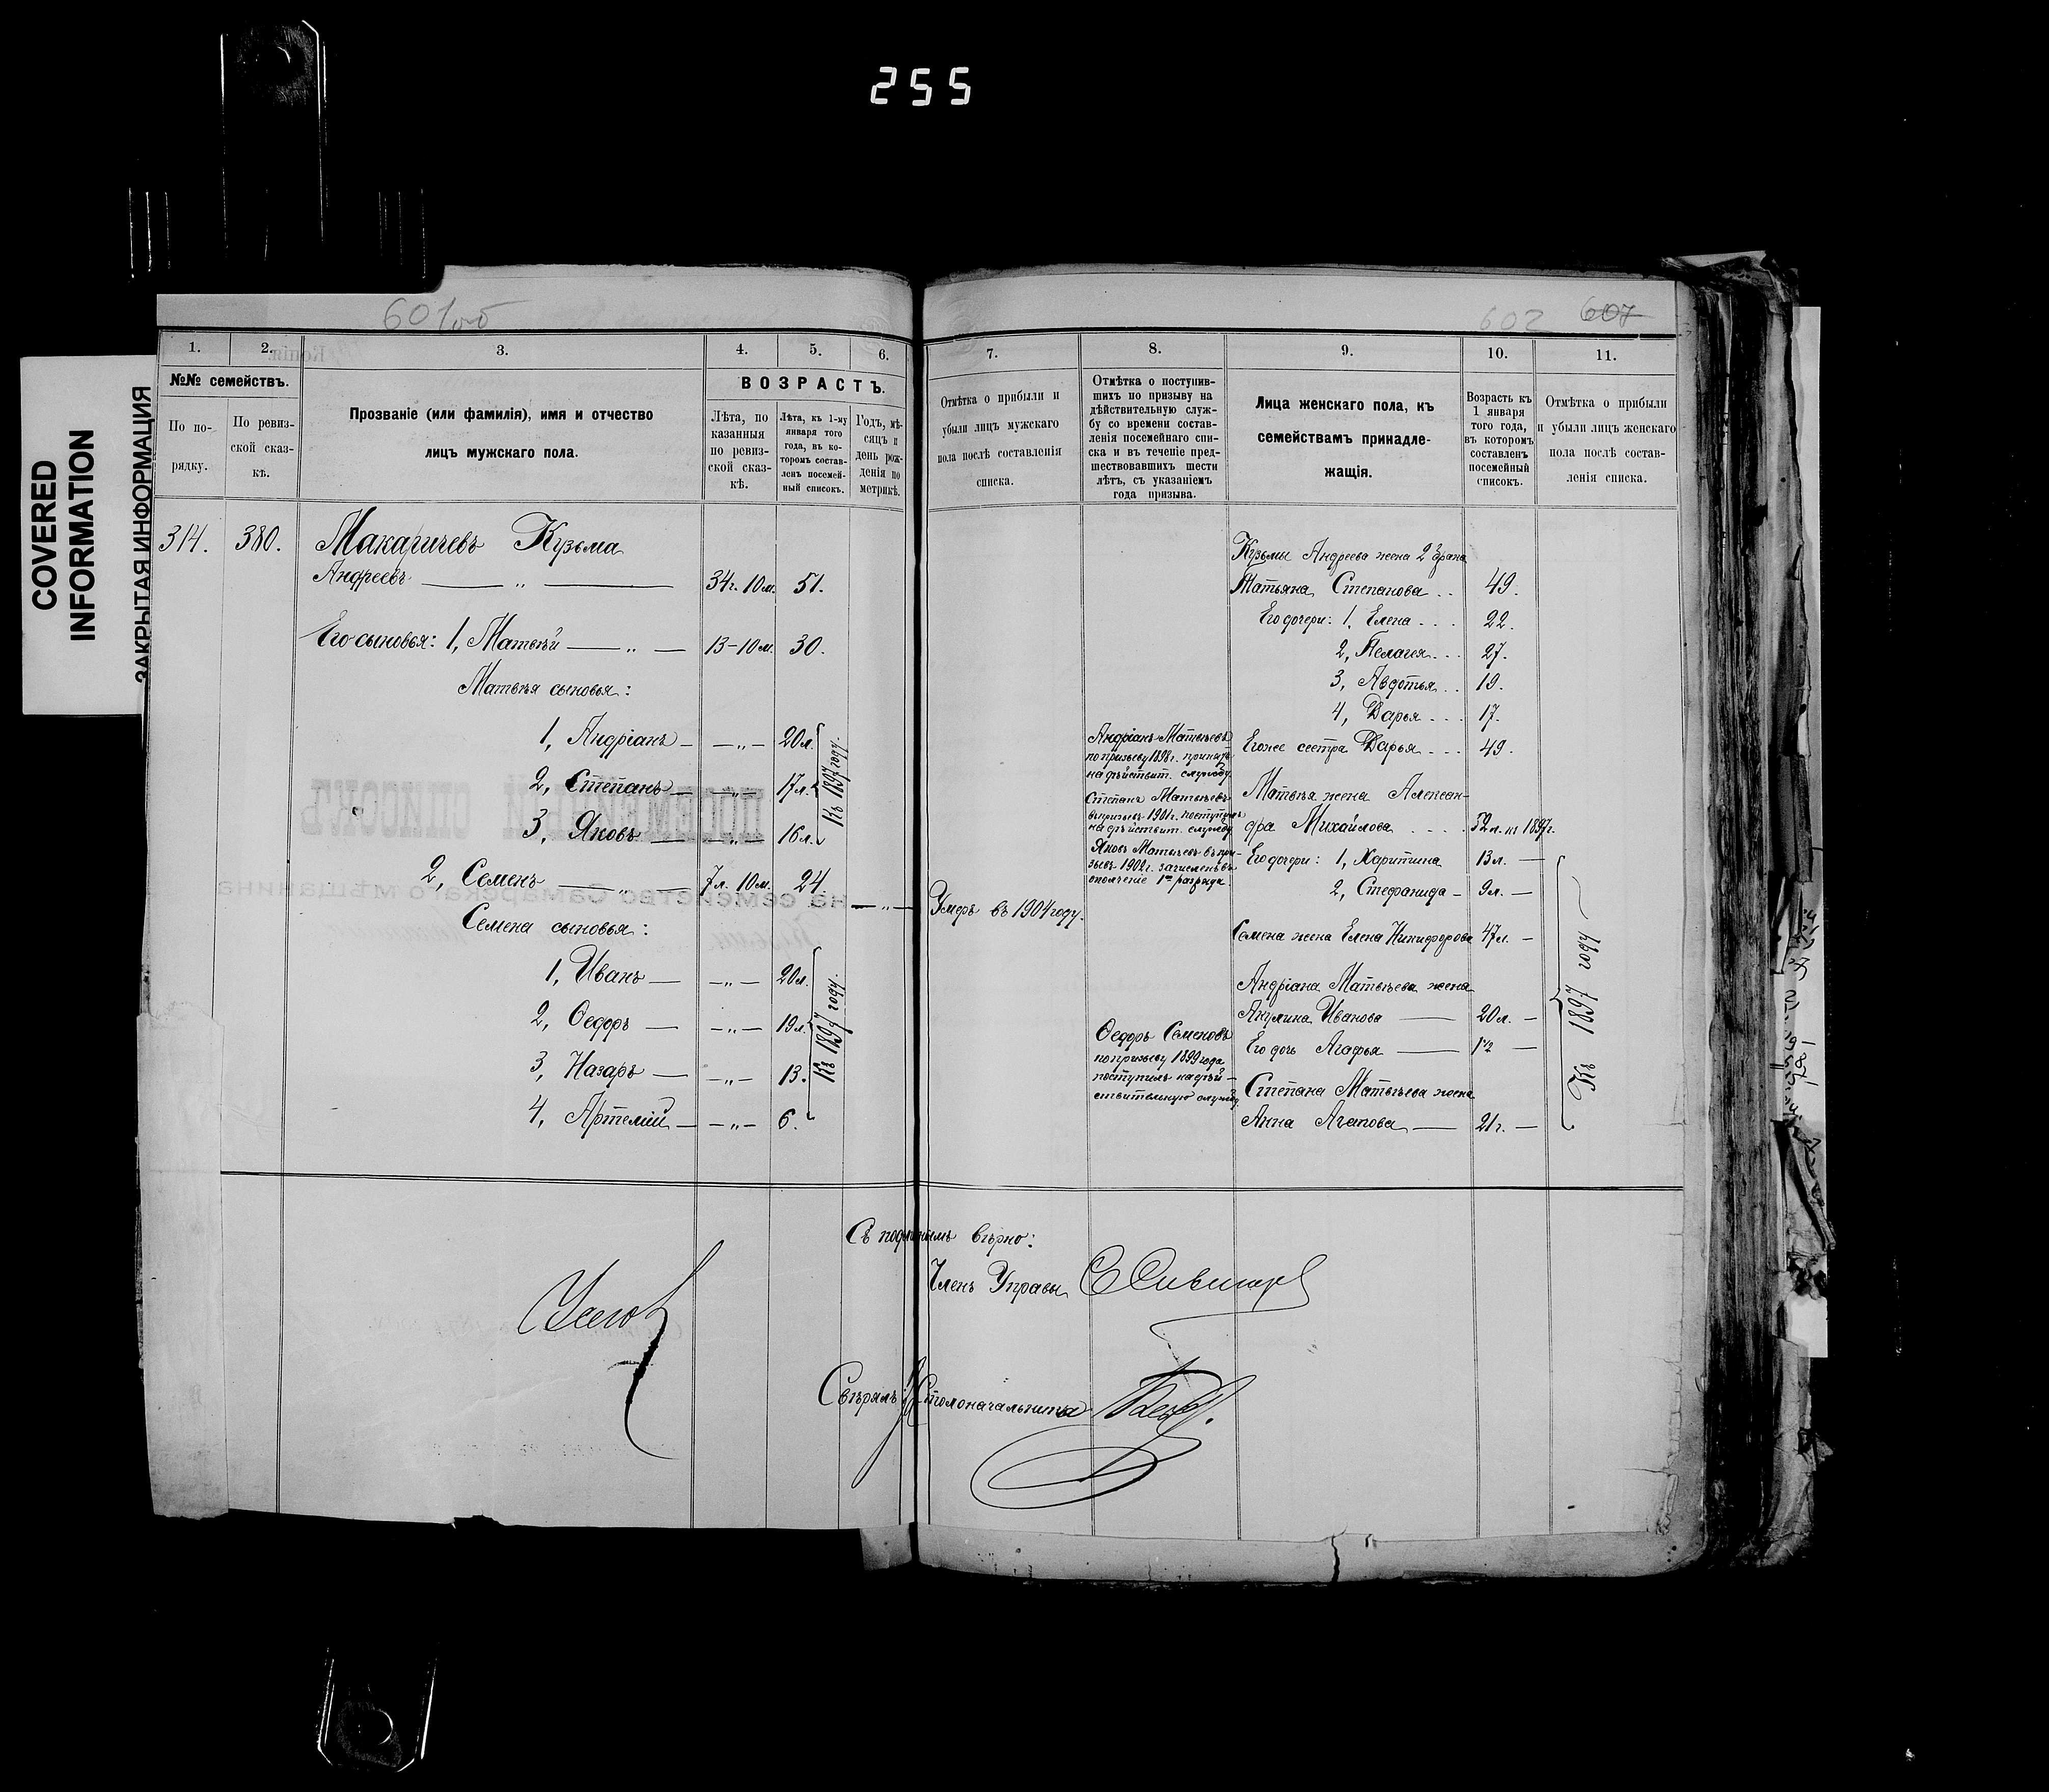 255
COVERED
INFORMATION
ЗАКРЫТАЯ ИНФОРМАЦИЯ
601 об
602 607
1. 2. 3. 4. 5. 6.
№№ семействъ.
По по-
рядку.
По ревиз-
ской сказ-
кѣ.
Прозваніе (или фамилія), имя и отчество
лицъ мужскаго пола.
ВОЗРАСТЪ.
Лѣта, по
казанныя
по ревиз-
ской сказ-
кѣ.
Лѣта, къ 1-му
января того
года, въ ко-
торомъ состав-
ленъ посемей-
ный списокъ.
Годъ, мѣ-
сяцъ и
день рож-
денія по
метрикѣ.
314. 380. Макаричевъ Кузьма
Андреевъ — „ — 34г. 10м. 51.
Его сыновья: 1, Матвѣй — „ — 13-10м. 30.
Матвѣя сыновья:
1, Андріанъ — — „ — 20л.
2, Степанъ — — „ — 17л.
3, Яковъ — — „ — 16л.
Къ 1897 году.
2, Семенъ — „ — 7л. 10м. 24. — „ —
Семена сыновья:
1, Иванъ — — „ — 20л.
2, Ѳедоръ — — „ — 19л.
3, Назаръ — — „ — 13.
4, Артемій — — „ — 6.
Къ 1897 году.
7. 8. 9. 10. 11.
Отмѣтка о прибыли и
убыли лицъ мужскаго
пола послѣ составленія
списка.
Отмѣтка о поступив-
шихъ по призыву на
дѣйствительную служ-
бу со времени состав-
ленія посемейнаго спи-
ска и въ теченіе пред-
шествовавшихъ шести
лѣтъ, съ указаніемъ
года призыва.
Лица женскаго пола, къ
семействамъ принадле-
жащія.
Возрастъ къ
1 января
того года,
въ которомъ
составленъ
посемейный
списокъ.
Отмѣтка о прибыли
и убыли лицъ женскаго
пола послѣ состав-
ленія списка.
Умеръ въ 1904 году.
Андріанъ Матвѣевъ
по призыву 1898 г. принятъ
на дѣйствит. службу
Степанъ Матвѣевъ
въ призывъ 1901 г. поступилъ
на дѣйствит. службу
Яковъ Матвѣевъ въ при-
зывъ 1902 г. зачисленъ въ
ополченіе 1го разряда
Ѳедоръ Семеновъ
по призыву 1899 года
поступилъ на дѣй-
ствительную службу.
Кузьмы Андреева жена 2 брака
Татьяна Степанова . . 49.
Его дочери: 1, Елена . . . 22.
2, Пелагея . . . 27.
3, Авдотья . . 19.
4, Дарья . . . 17.
Его же сестра Дарья . . . 49.
Матвѣя жена Алексан-
дра Михайлова . . . . 52л. къ 1897г.
Его дочери: 1, Харитина 13л. —
2, Стефанида — 9л. —
Семена жена Елена Никифорова 47л. —
Андріана Матвѣева жена
Акулина Иванова — 20л. —
Его дочь Агафья — 1½ —
Степана Матвѣева жена
Анна Агапова — 21г. —
Къ 1897 году
Съ подлиннымъ вѣрно:
Членъ Управы
Свѣрялъ: Столоначальника